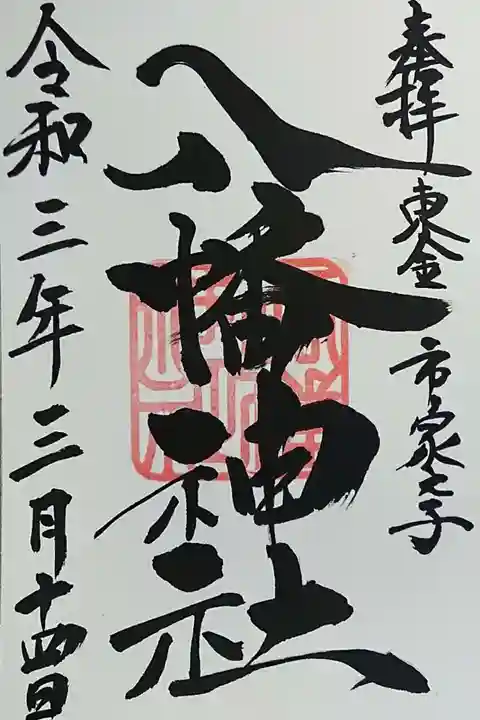 奉拝 東金 市家之子
八幡神社
令和三年三月十四日